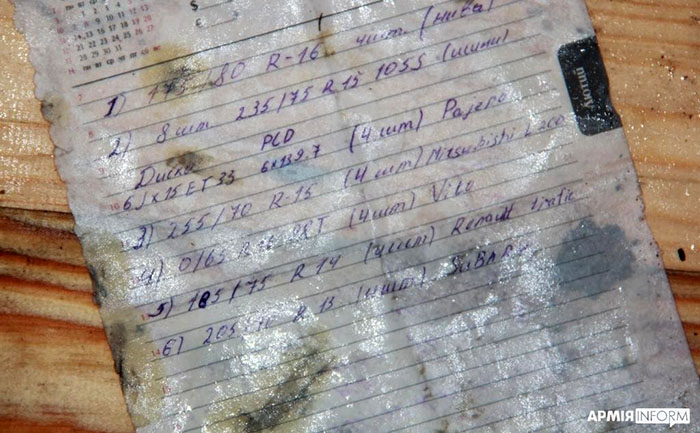 1) 175/80 R-16 4шт. (нива)
2) 8 шт 235/75 R15 105S (шипи)
Диски PCD
6Jx15 ET33 6x139.7 (4шт) Pajero
3) 255/70 R-15 (4шт) Mitsubishi L200
4) 0/65 R 98T (4шт) Vito
5) 185/75 R14 (4шт) Renault trafic
6) 205/ R 15 (4шт) SUBARU
ЛЮТИЙ
АРМІЯINFORM